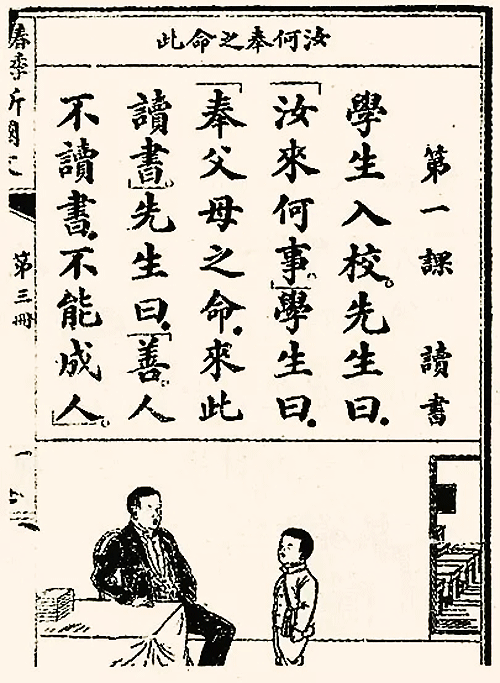 汝何奉之命此
第一課 讀書
學生入校。先生曰.
「汝來何事」。學生曰.
「奉父母之命.來此
讀書」。先生曰.「善。人
不讀書.不能成人」。
春季
第三冊